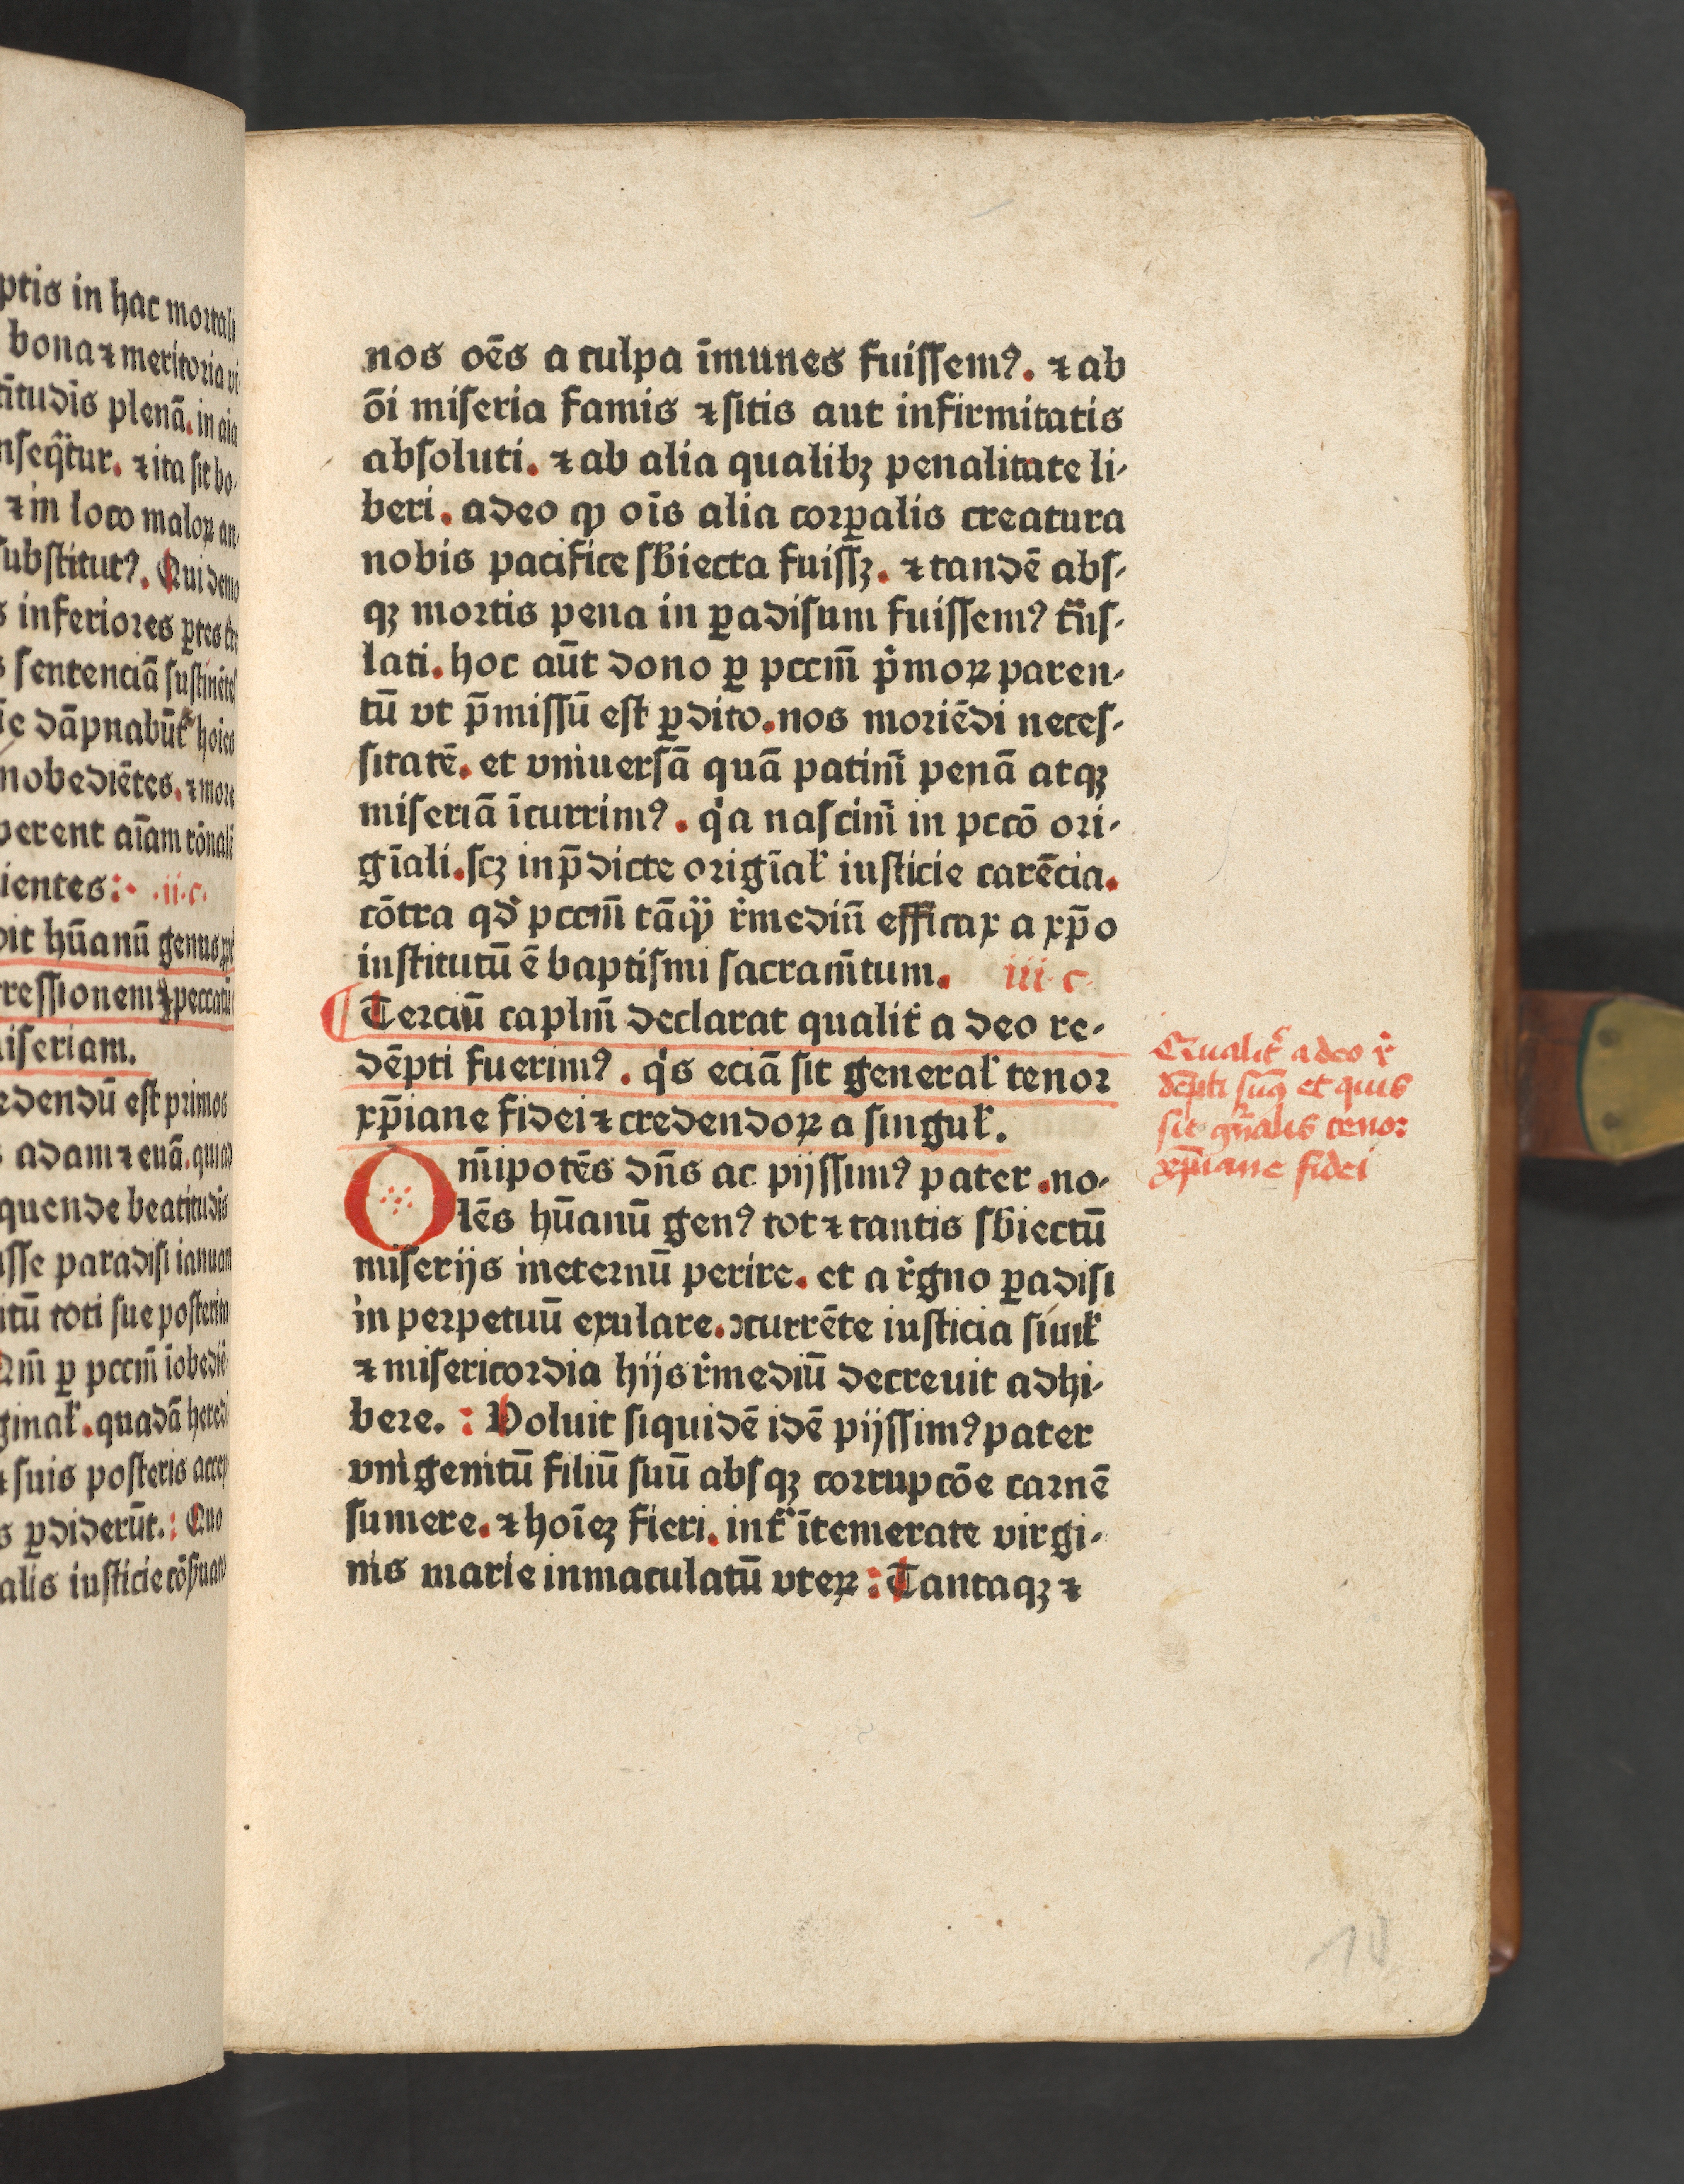 ptis in hac mortali
bona ⁊ meritoria vi⸗
titudīs plenā. in aīa
nseq̄tur. ⁊ ita sit bo⸗
⁊ in loco maloꝝ an⸗
substitutꝰ. Qui demo
s inferiores ꝑtes
s sentenciā sustinētes
dāpnabūt hoies
nobediētes. ⁊ more
perent aīam rōnali
ientes: .ii.c.
dit hūanū genus
ressionem ⁊ peccatū
iseriam.
edendū est primos
s adam ⁊ euā. quia
quende beatitudīs
isse paradisi ianuam
itū toti sue posterita
Qm̄ ꝑ pccm̄ īobediē
ginal̓. quadā heredi
⁊ suis posteris accep
s ꝑdiderūt.: Quo
alis iusticie cōẜuand
nos oēs a culpa īmunes fuissemꝰ. ⁊ ab
ōi miseria famis ⁊ sitis aut infirmitatis
absoluti. ⁊ ab alia qualibꝫ penalitate li⸗
beri. adeo ꝙ oīs alia corꝑalis creatura
nobis pacifice sb̄iecta fuissꝫ. ⁊ tandē abs⸗
qꝫ mortis pena in ꝑadisum fuissemꝰ tn̄s⸗
lati. hoc aūt dono ꝑ pccm̄ pͥmoꝝ paren⸗
tū vt p̄missū est ꝑdito. nos moriēdi neces⸗
sitatē. et vniuersā quā patim̄ penā atqꝫ
miseriā īcurrimꝰ. qͥa nascim̄ in pccō ori⸗
gīali. scꝫ in p̄dicte origīal̓ iusticie carēcia.
cōtra qd̓ pccm̄ tāꝙͣ r̓mediū efficax a xp̄o
institutū ē baptismi sacram̄tum. iii.c.
¶ Terciū caplm̄ declarat qualit̓ a deo re⸗
dēpti fuerimꝰ. qͥs eciā sit general̓ tenor
xp̄iane fidei ⁊ credendoꝝ a singul̓.
Om̄ipotēs dn̄s ac pijssimꝰ pater. no⸗
lēs hūanū genꝰ tot ⁊ tantis sb̄iectū
miserijs ineternū perire. et a r̓gno ꝑadisi
in perpetuū exulare. ↄcurrēte iusticia simil̓
⁊ misericordia hijs r̓mediū decreuit adhi⸗
bere.: Voluit siquidē idē pijssimꝰ pater
vnigenitū filiū suū absqꝫ corrupcōe carnē
sumere. ⁊ hoīeꝫ fieri. int̓ ītemerate virgi⸗
nis marie inmaculatū vteꝝ: Tantaqꝫ ⁊
Qualit̓ a deo r̓
dēpti sumꝰ et quis
sit gn̄alis tenor
xp̄iane fidei